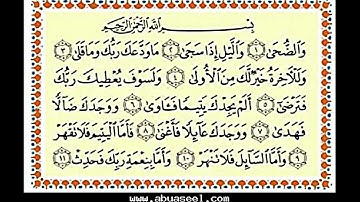 بِسْمِ اللَّهِ الرَّحْمَٰنِ الرَّحِيمِ
وَالضُّحَىٰ ١ وَاللَّيْلِ إِذَا سَجَىٰ ٢ مَا وَدَّعَكَ رَبُّكَ وَمَا قَلَىٰ ٣
وَلَلْآخِرَةُ خَيْرٌ لَّكَ مِنَ الْأُولَىٰ ٤ وَلَسَوْفَ يُعْطِيكَ رَبُّكَ
فَتَرْضَىٰ ٥ أَلَمْ يَجِدْكَ يَتِيمًا فَآوَىٰ ٦ وَوَجَدَكَ ضَالًّا
فَهَدَىٰ ٧ وَوَجَدَكَ عَائِلًا فَأَغْنَىٰ ٨ فَأَمَّا الْيَتِيمَ فَلَا تَقْهَرْ
٩ وَأَمَّا السَّائِلَ فَلَا تَنْهَرْ ١٠ وَأَمَّا بِنِعْمَةِ رَبِّكَ فَحَدِّثْ ١١
www.abuaseel.com